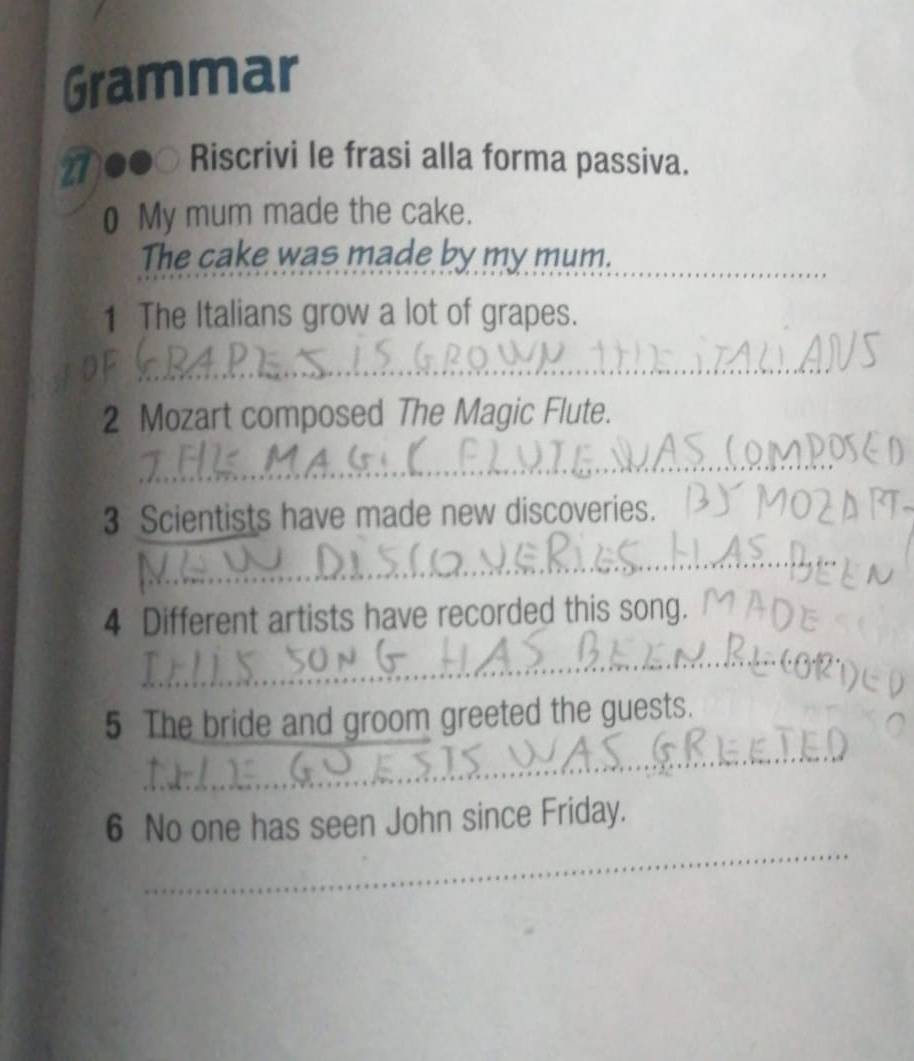 Grammar
27 Riscrivi le frasi alla forma passiva.
0 My mum made the cake.
The cake was made by my mum.
1 The Italians grow a lot of grapes.
OF GRAPES IS GROWN THE ITALIANS
2 Mozart composed The Magic Flute.
THE MAGIC FLUTE WAS COMPOSED
BY MOZART
3 Scientists have made new discoveries.
NEW DISCOVERIES HAS BEEN
MADE
4 Different artists have recorded this song.
THIS SONG HAS BEEN RECORDED
5 The bride and groom greeted the guests.
THE GUESTS WAS GREETED
6 No one has seen John since Friday.